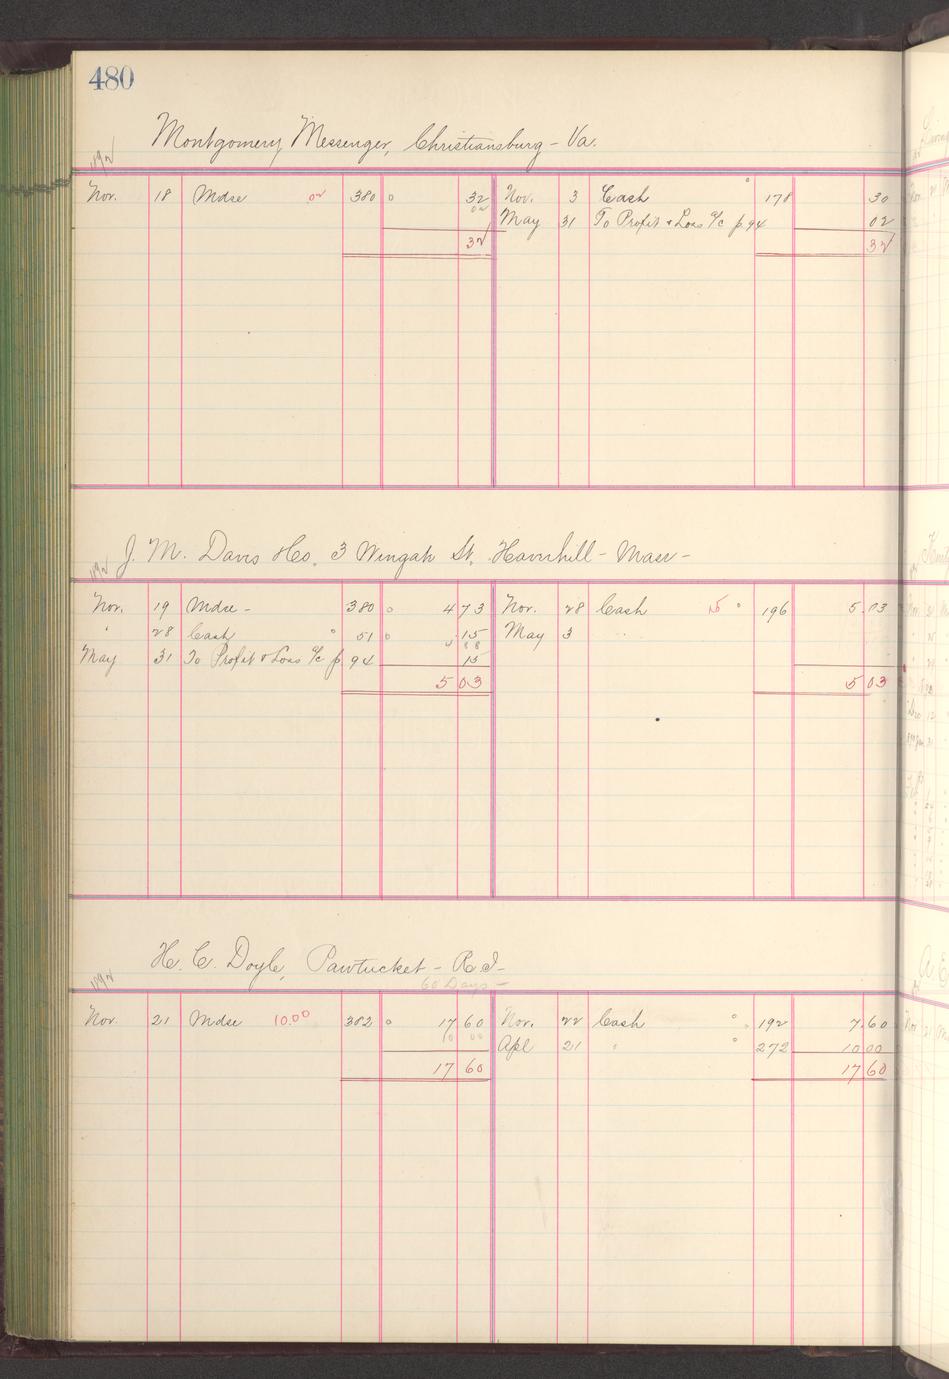 480
Montgomery Messenger, Christiansburg - Va.
1892
Nov. 18 Mdse 02 380 32 Nov. 3 Cash 178 30
02 May 31 To Profit & Loss a/c p. 94 02
32 32
J. M. Davis &Co. 3 Wingate St. Haverhill - Mass -
1892
Nov. 19 Mdse - 380 4 73 Nov. 28 Cash 15 196 5.03
" 28 Cash " 51 15 May 3
May 31 To Profit & Loss a/c p 94 15
5 03 5 03
H. C. Doyle, Pawtucket - R.I -
60 Days -
1892
Nov. 21 Mdse 10.00 382 17 60 Nov. 22 Cash " 192 7.60
10 00 Apl 21 " " 272 10 00
17 60 17 60